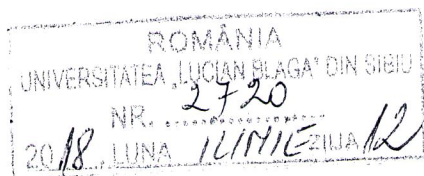 ROMÂNIA
UNIVERSITATEA „LUCIAN BLAGA" DIN SIBIU
NR. 2720
2018. LUNA IUNIE ZIUA 12